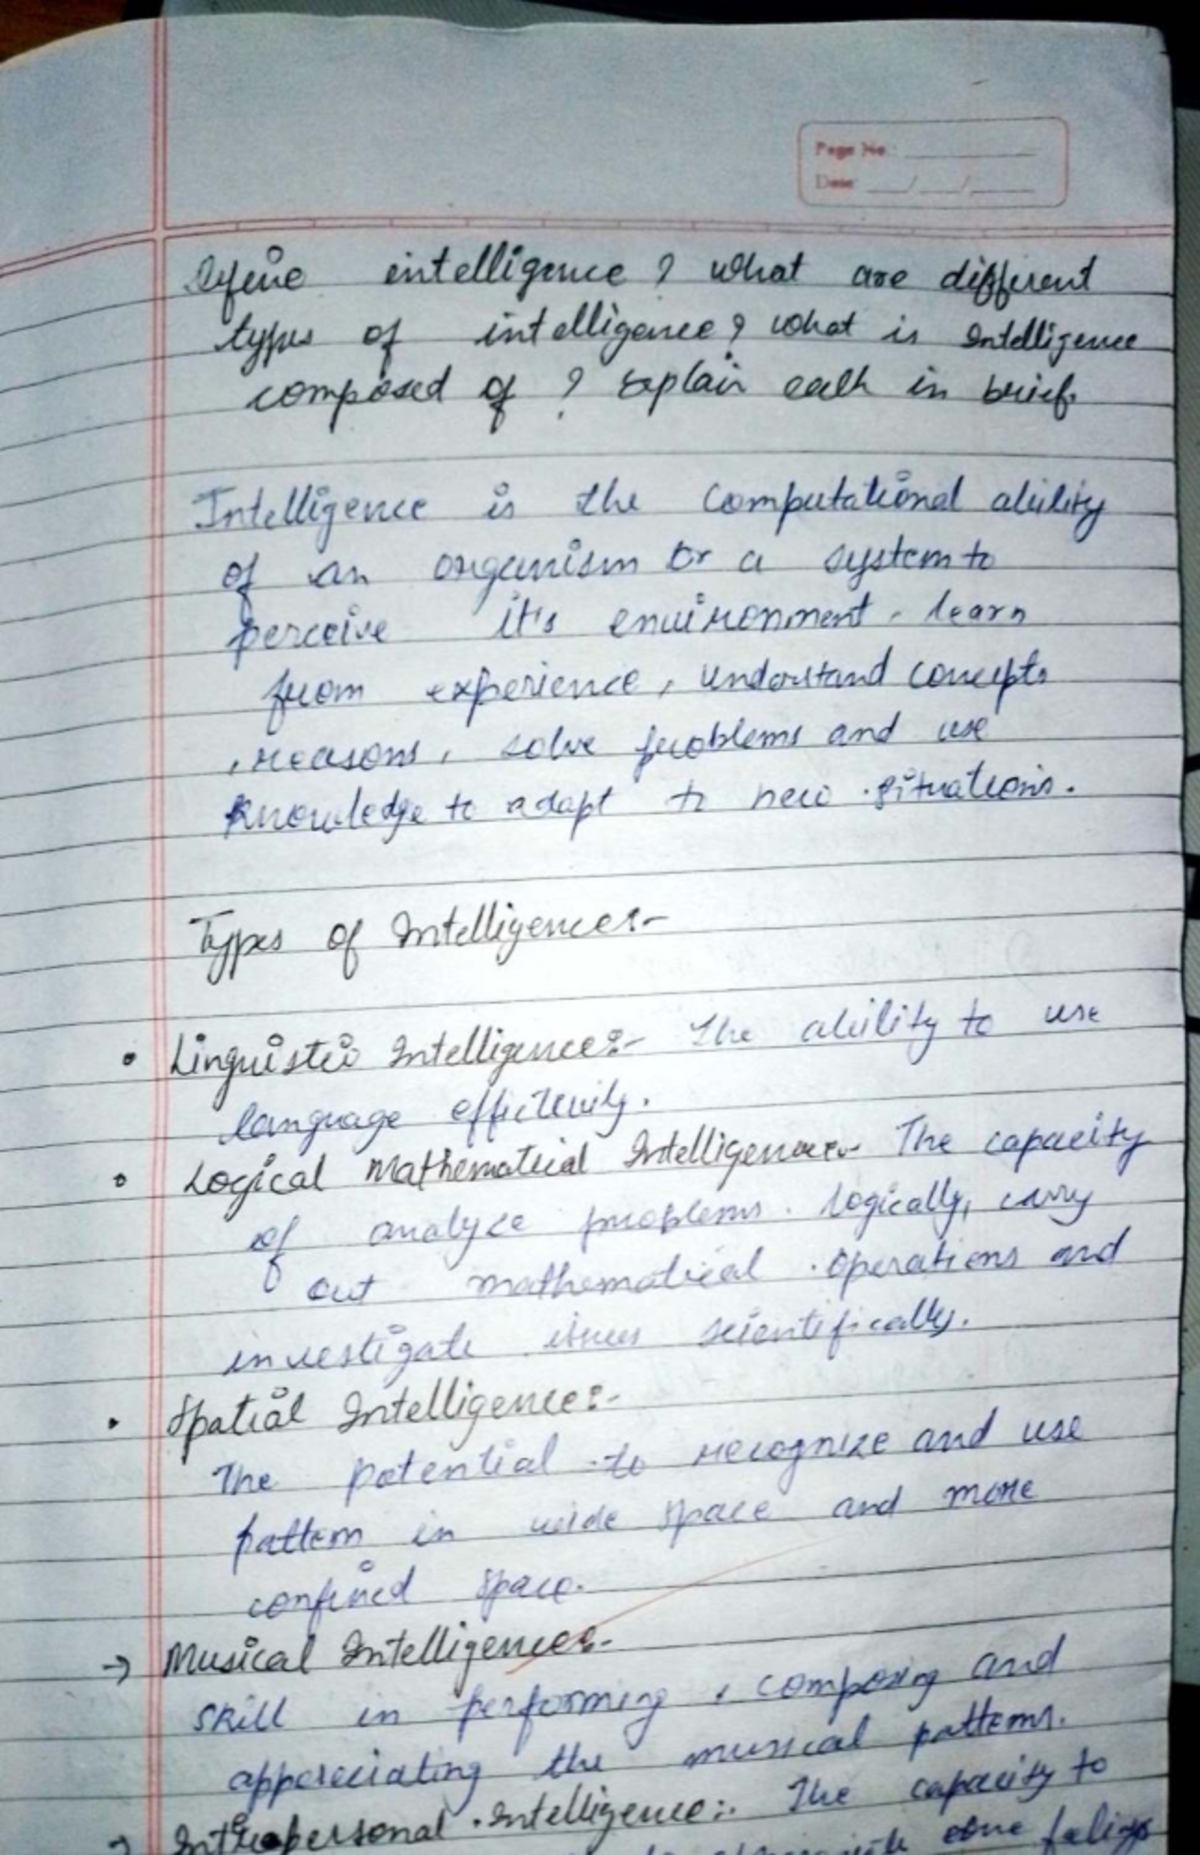 Page No:
Date: / /
Define intelligence ? what are different
types of intelligence ? what is Intelligence
composed of ? Explain each in brief.
Intelligence is the computational ability
of an organism or a system to
perceive it's environment, learn
from experience, understand concepts
, reasons, solve problems and use
knowledge to adapt to new situations.
Types of Intelligence:-
• Linguistic Intelligence:- The ability to use
language effectively.
• Logical Mathematical Intelligence:- The capacity
of analyze problems. logically, carry
out mathematical operations and
investigate issues scientifically.
• Spatial Intelligence:-
The potential to recognize and use
pattern in wide space and more
confined space.
→ Musical Intelligence:-
skill in performing, composing and
appreciating the musical patterns.
→ Intrapersonal Intelligence:. The capacity to
one felings